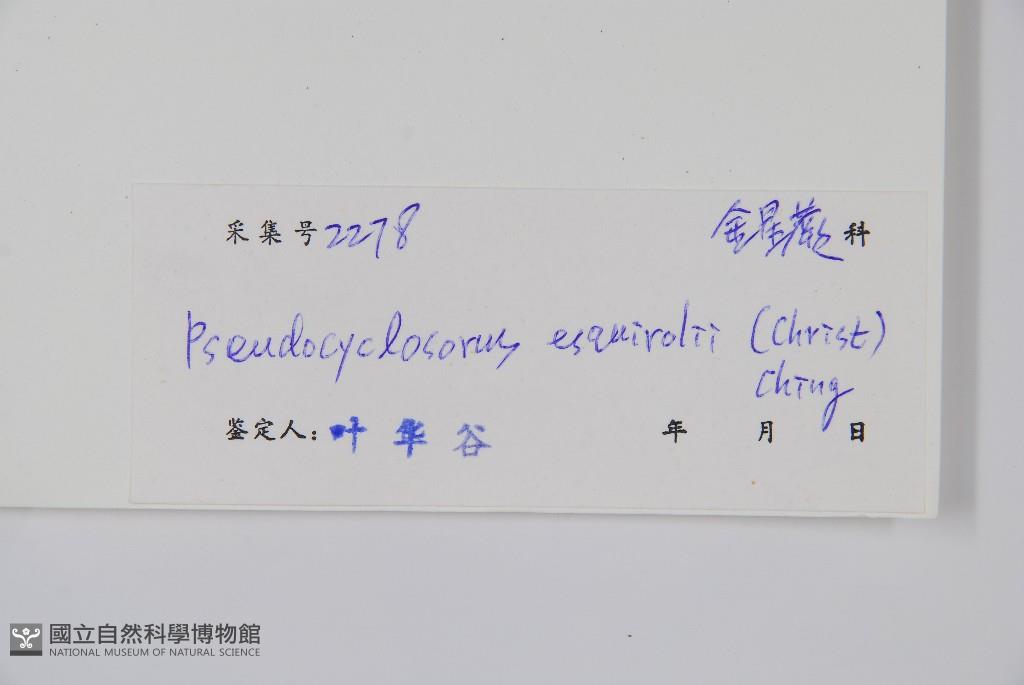 采集号 2278 金星蕨科
Pseudocyclosorus esquirolii (Christ)
Ching
鉴定人：叶华谷 年 月 日
國立自然科學博物館
NATIONAL MUSEUM OF NATURAL SCIENCE